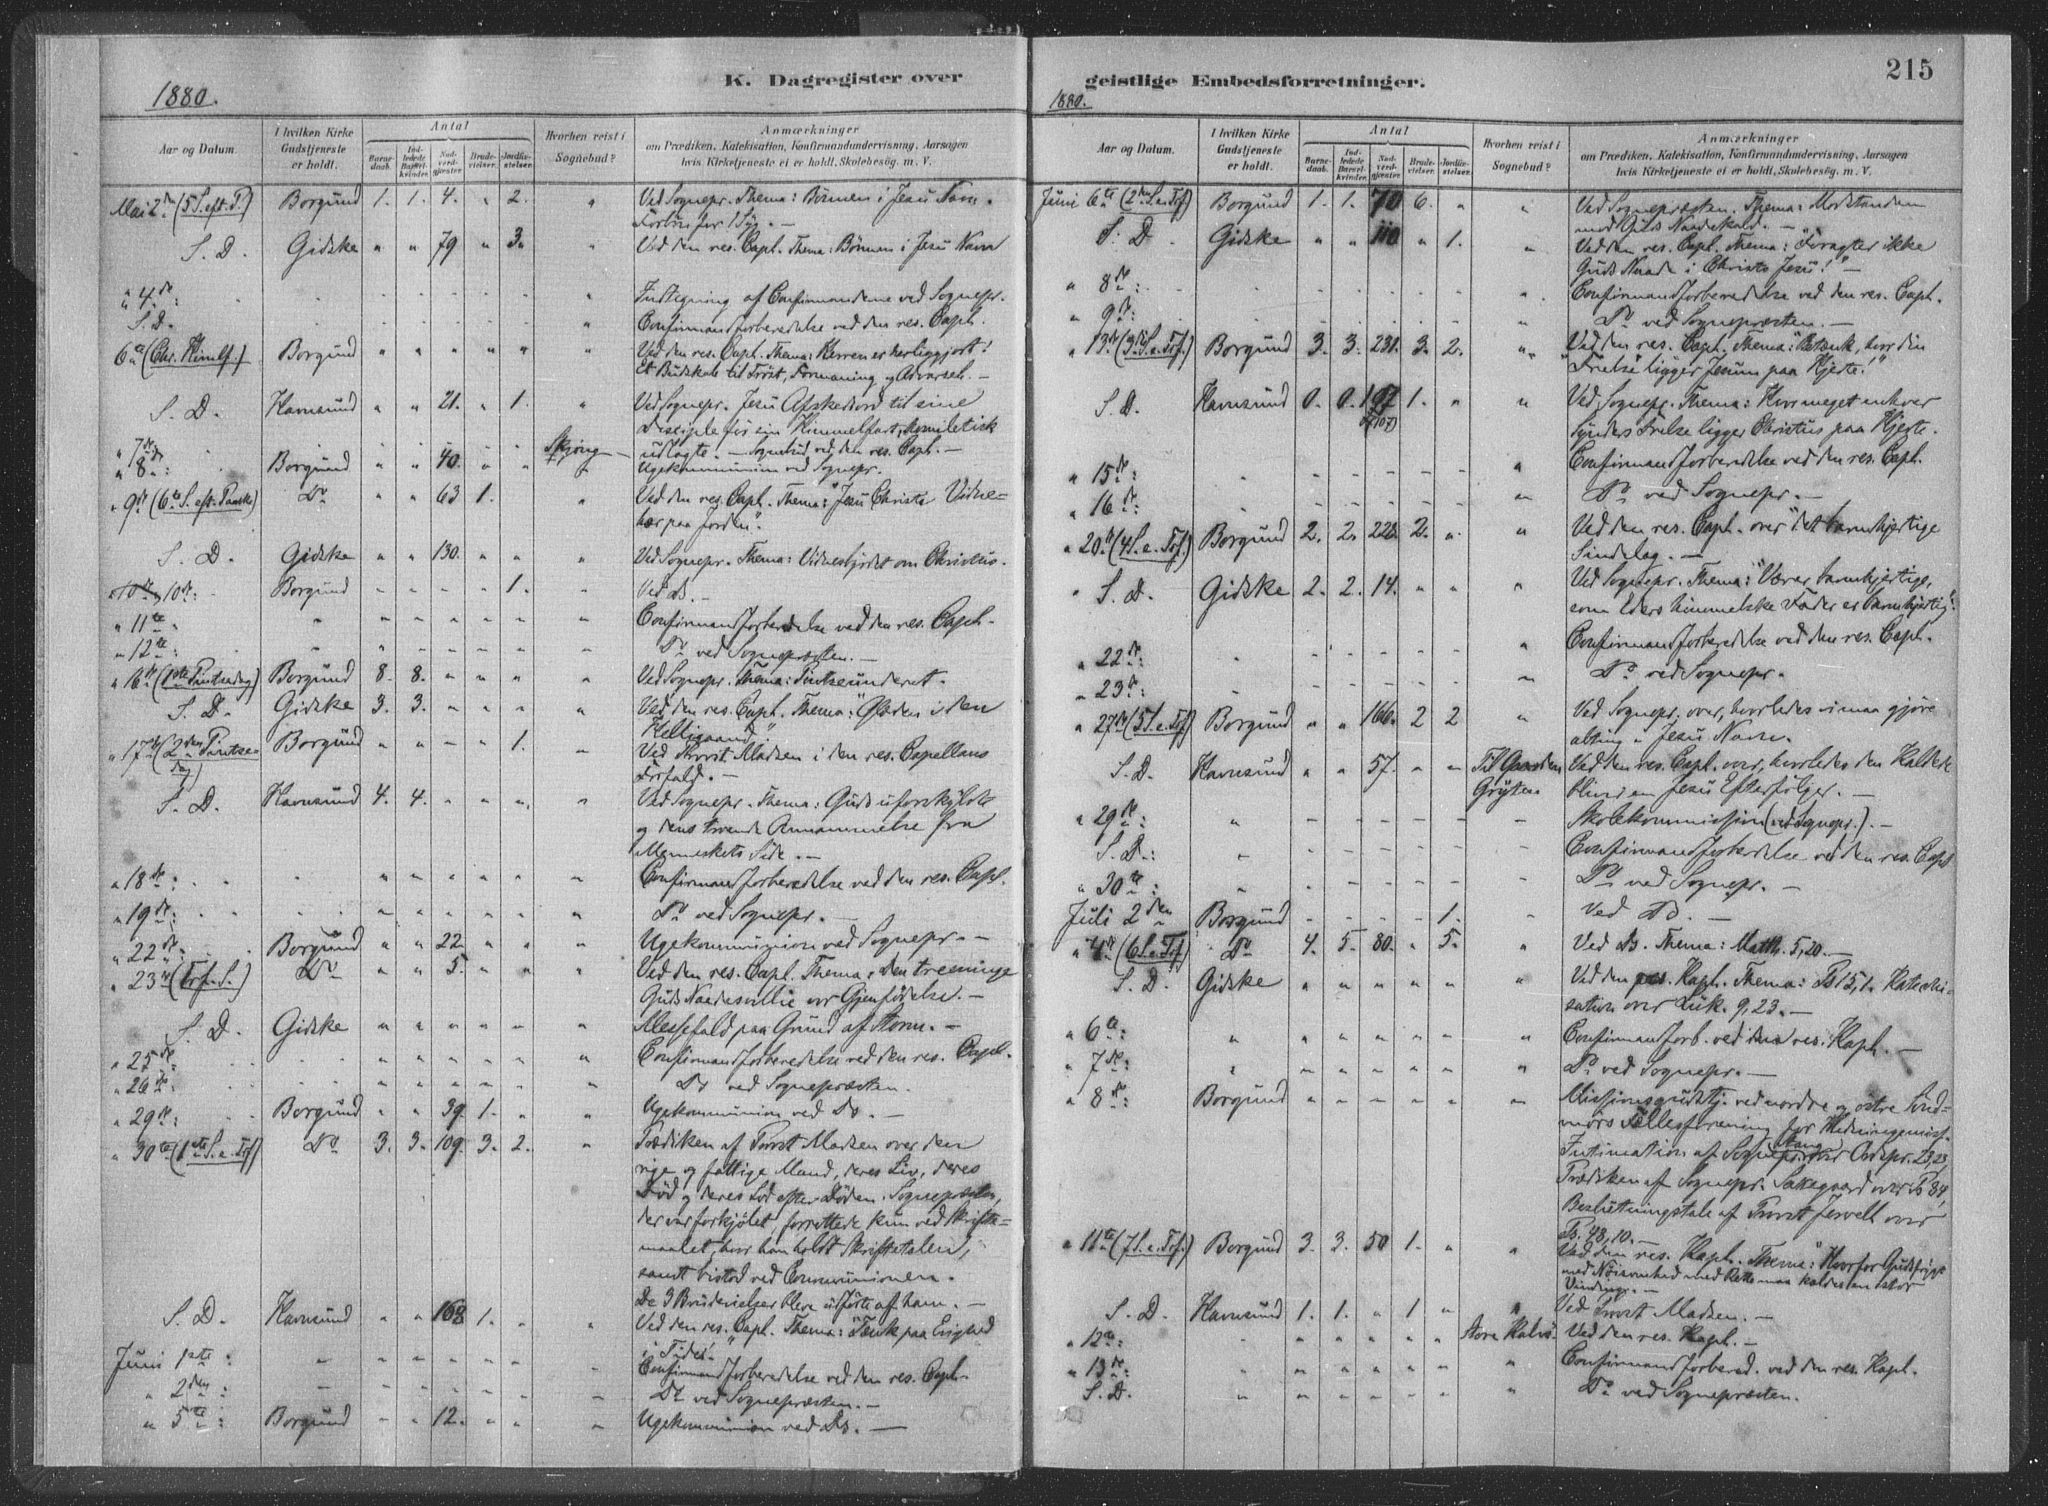 K. Dagregister over
1880.
Aar og Datum.
I hvilken Kirke Gudstjeneste er holdt.
Antal
Barnedaab.
Indledede Barselkvinder.
Nadverdgjester.
Brudevielser.
Jordfæstelser.
Hvorhen reist i Sognebud?
Anmærkninger
om Prædiken, Katekisation, Konfirmandundervisning, Aarsagen
hvis Kirketjeneste ei er holdt, Skolebesøg. m. V.
Mai 2den (5 S. eft. P.) Borgund 1. 1. 4. " 2. " Ved Sognepr. Thema: Bønnen i Jesu Navn.
S. D. Gidske " " 79 " 3. " Ved den res. Capl. Thema: Bønnen i Jesu Navn
" 4de: " Indtegning af Confirmanderne ved Sognepr.
S. D. " Confirmandforberedelse ved den res. Capl.
6te (Chr. Himlf.) Borgund " " " " " " Ved den res. Capl. Thema: Herren er herliggjort!
Et Budskab til Trøst, Formaning og Advarsel. —
S. D. Havnsund " " 21. " 1. " Ved Sognepr. Jesu Afskedsord til sine
Disciple før sin Himmelfart, homiletisk
" 7de Skjong udlagte. — Sognebud ved den res. Capl. —
" 8de: Borgund " " 40. " " " Ugekommunion ved Sognepr.
" 9de (6te S. eft. Paaske) Do " " 63 1. " Ved den res. Capl. Thema: "Jesu Christi Vidne-
her paa Jorden".
S. D. Gidske " " 130. " " " Ved Sognepr. Thema: Vidnesbyrdet om Christus.
10de: Borgund " " " " 1. " Ved Ds. —
" 11te " Confirmandforberedelse ved den res. Capl.
" 12te " Do ved Sognepræsten. —
" 16de (1ste Pintsedag) Borgund 8. 8. " " " " Ved Sognepr. Thema: Pintseunderet.
S. D. Gidske 3. 3. " " " " Ved den res. Capl. Thema: "Glæden i den
Helligaand".
" 17de (2den Pintse- Borgund " " " " 1. " Ved Provst Madsen i den res. Capellans
dag) Forfald. —
S. D. Havnsund 4. 4. " " " " Ved Sognepr. Thema: Guds uforskyldte
og dens troende Annammelse fra
Menneskets Side. —
" 18de: " Confirmandforberedelse ved den res. Capl.
" 19de: " Do ved Sognepr. —
" 22de: Borgund " " 22. " " " Ugekommunion ved Sognepr. —
" 23de (Trf. S.) Do " " 5. " " " Ved den res. Capl. Thema: den treenige
Guds Naadesvillie vor Gjenfødelse. —
S. D. Gidske " " " " " " Messefald paa Grund af Storm. —
" 25de " Confirmandforberedelse ved den res. Capl.
" 26de " Do ved Sognepræsten.
" 29de: Borgund " " 39. 1. " " Ugekommunion ved Ds. —
" 30te (1ste S. e. Trf) Do 3. 3. 109. 3. 2. " Prædiken af Provst Madsen over den
rige og fattige Mand, deres Liv, deres
Død og deres Lod efter Døden. Sognepræsten,
der var forkjølet, forrettede kun ved Skrifte-
maalet, hvor han holdt Skriftetalen,
samt bistod ved Communionen.
De 3 Brudevielser bleve udførte af ham. —
S. D. Havnsund " " 168 1. " " Ved den res. Capl. Thema: "Tænk paa Evighed
i Tide!"
Juni 1ste: " Confirmandforberedelse ved den res. Capl.
" 2den: " Do ved Sognepræsten. —
" 5te: Borgund " " 12. " " " Ugekommunion ved Ds. —
geistlige Embedsforretninger.
215
1880.
Aar og Datum.
I hvilken Kirke Gudstjeneste er holdt.
Antal
Barnedaab.
Indledede Barselkvinder.
Nadverdgjester.
Brudevielser.
Jordfæstelser.
Hvorhen reist i Sognebud?
Anmærkninger
om Prædiken, Katekisation, Konfirmandundervisning, Aarsagen
hvis Kirketjeneste ei er holdt, Skolebesøg. m. V.
Juni 6te (2den S. e. Trf) Borgund 1. 1. 70 6. " " Ved Sognepræsten. Thema: Modstanden
mod Guds Naadekald. —
S. D. Gidske " " 110 " 1. " Ved den res. Capl. Thema: "Foragter ikke
Guds Naade i Christo Jesu!" —
" 8de: " Confirmandforberedelse ved den res. Capl.
" 9de: " Do ved Sognepræsten. —
" 13de (3die S. e. Trf.) Borgund 3. 3. 231. 3. 2. " Ved den res. Capl. Thema: Betænk, hvor din
Frelse ligger Jesum paa Hjerte!"
S. D. Havnsund 0. 0. 107 1. " " Ved Sognepr. Thema: Hvor meget enhver
(107) Synders Frelse ligger Christus paa Hjerte.
" 15de: " Confirmandforberedelse ved den res. Capl.
" 16de: " Do ved Sognepr. —
" 20de (4 S. e. Trf.) Borgund 2. 2. 228. 2. " " Ved den res. Capl. over "det barmhjertige
Sindelag. —
S. D. Gidske 2. 2. 14. " " " Ved Sognepr. Thema: "Værer barmhjertige,
som Eders himmelske Fader er barmhjertig".
" 22de: " Confirmandforberedelse ved den res. Capl.
" 23de: " Do ved Sognepr.
" 27de (5 S. e. Trf) Borgund " " 166. 2 2 " Ved Sognepr. over, hvorledes vi maa gjøre
alting i Jesu Navn.
S. D. Havnsund " " 57. " " Til Gaarden Ved den res. Capl. over, hvorledes den Kaldede
Gryten bliver en Jesu Efterfølger. —
" 29de: " Skolekommission (ved Sognepr.). —
S. D.: " Confirmandforberedelse ved den res. Capl
" 30te: " Do ved Sognepr. —
Juli 2den Borgund " " " " 1. " Ved Ds. —
" 4de (6 S. e. Trf) Do 4. 5. 80. " 5. " Ved Ds. Thema: Matth. 5,20. —
S. D. Gidske " " " " " " Ved den res. Kapl. Thema: Ps 15,1. Kateki-
sation over Luk. 9,23. —
" 6te: " Confirmandforb. ved den res. Kapl. —
" 7de: " Do ved Sognepr. —
" 8de: Borgund " " " " " " Missionsgudstj. ved nordre og østre Sønd-
mørs Fællesforening for Hedningemiss.
Intimation af Sognepr. Ordspr. 23,23,
Prædiken af Sognepr. over Ps 84,
Beslutningstale af Provst over
Ps. 48,10. —
" 11te (7 S. e. Trf.) Borgund 3. 3. 50 1. " " Ved den res. Kapl. Thema: Hvorfor Gudsfrygt
med Nøisomhed med Rette maa kaldes en stor
Vinding. —
S. D. Havnsund 1. 1. " 1 " " Ved Provst Madsen. —
" 12te: " Store Kalvø Ved den res. Kapl. —
" 13de: " Confirmandforbered. ved den res. Kapl.
S. D. " Do ved Sognepræsten.